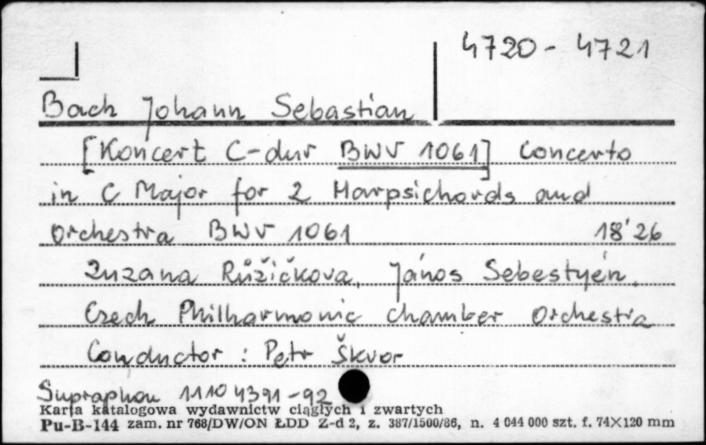 4720 - 4721
Bach Johann Sebastian
[Koncert C-dur BWV 1061] Concerto
in C Major for 2 Harpsichords and
Orchestra BWV 1061 18'26
Zuzana Růžičkova, János Sebestyén,
Czech Philharmonic Chamber Orchestra
Conductor : Petr Škvor
Supraphon 1110 4391-92
Karta katalogowa wydawnictw ciągłych i zwartych
Pu-B-144 zam. nr 768/DW/ON ŁDD Z-d 2, z. 387/1500/86, n. 4 044 000 szt. f. 74×120 mm